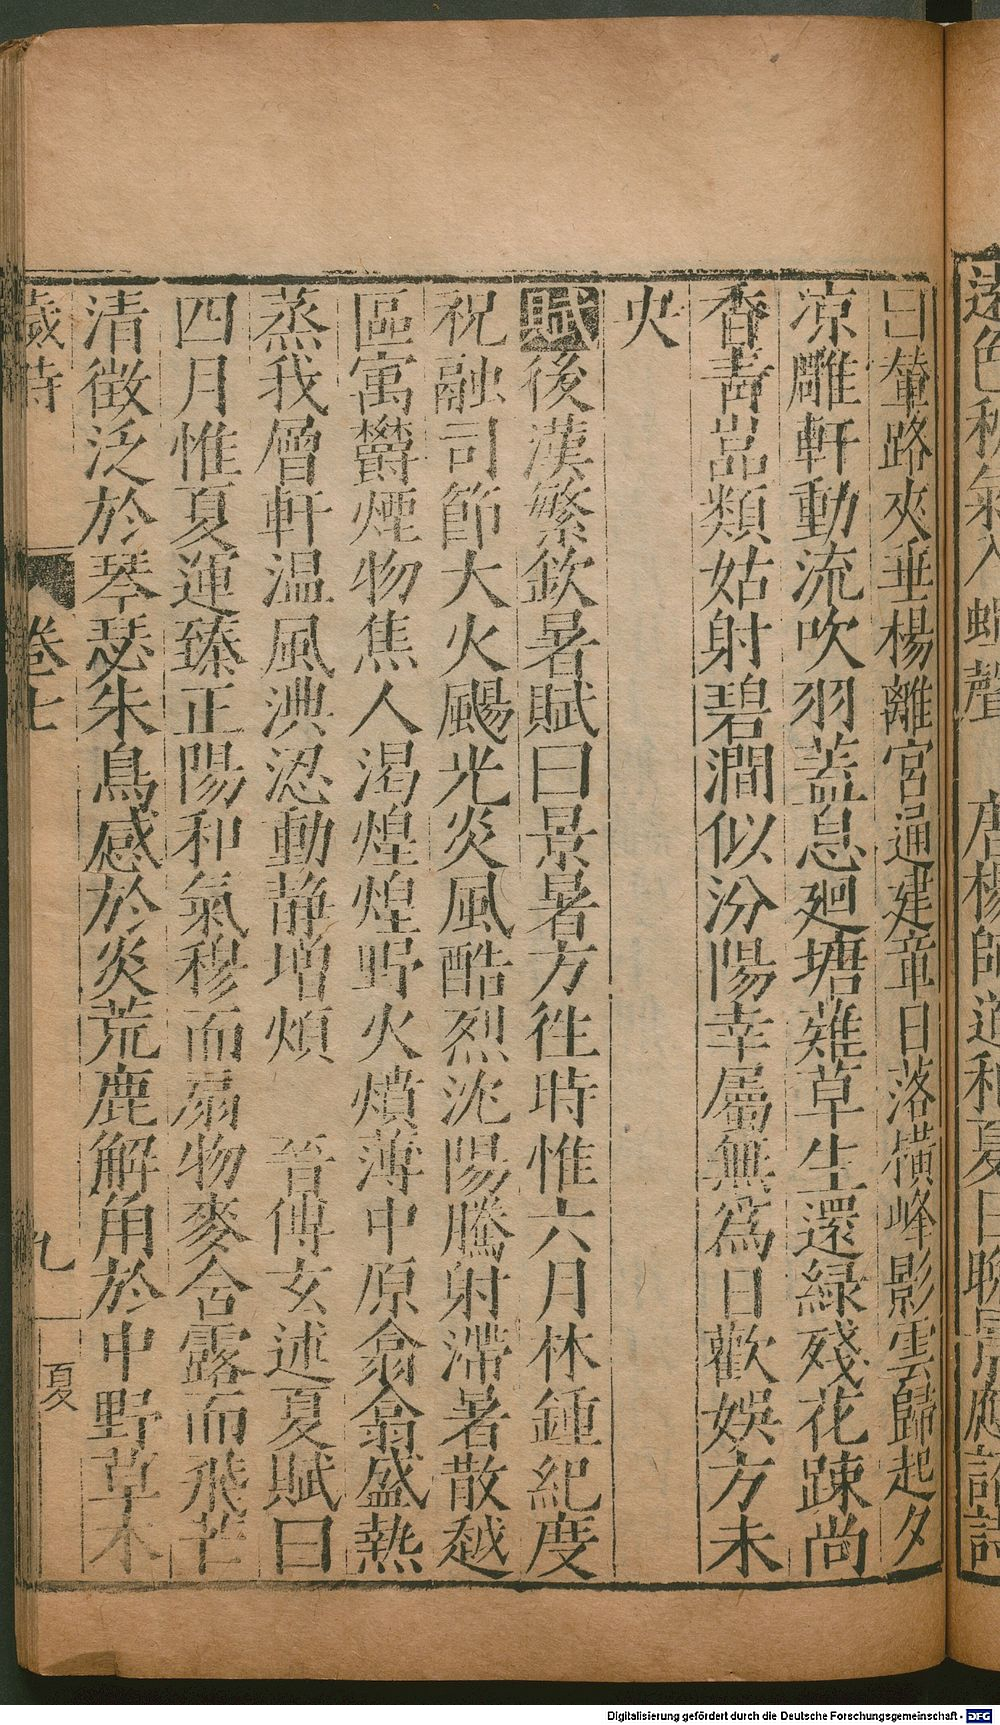 遠色秋氣入蟬聲　唐楊師道和夏日晚景應詔詩
曰輦路夾垂楊離宮通建章日落橫峰影雲歸起夕
凉雕軒動流吹羽蓋息廻塘薙草生還緑殘花踈尚
香青嵓類姑射碧澗似汾陽幸屬無爲日歡娛方未
央
賦後漢繁欽暑賦曰景暑方徃時惟六月林鍾紀度
祝融司節大火颺光炎風酷烈沈陽騰射滯暑散越
區寓鬱煙物焦人渴煌煌野火熕薄中原翕翕盛熱
蒸我層軒温風淟涊動静増煩　晉傅玄述夏賦曰
四月惟夏運臻正陽和氣穆而扇物麥含露而飛芒
清徴泛於琴瑟朱鳥感於炎荒鹿解角於中野草木
歲時　卷七　九　夏
Digitalisierung gefördert durch die Deutsche Forschungsgemeinschaft - DFG